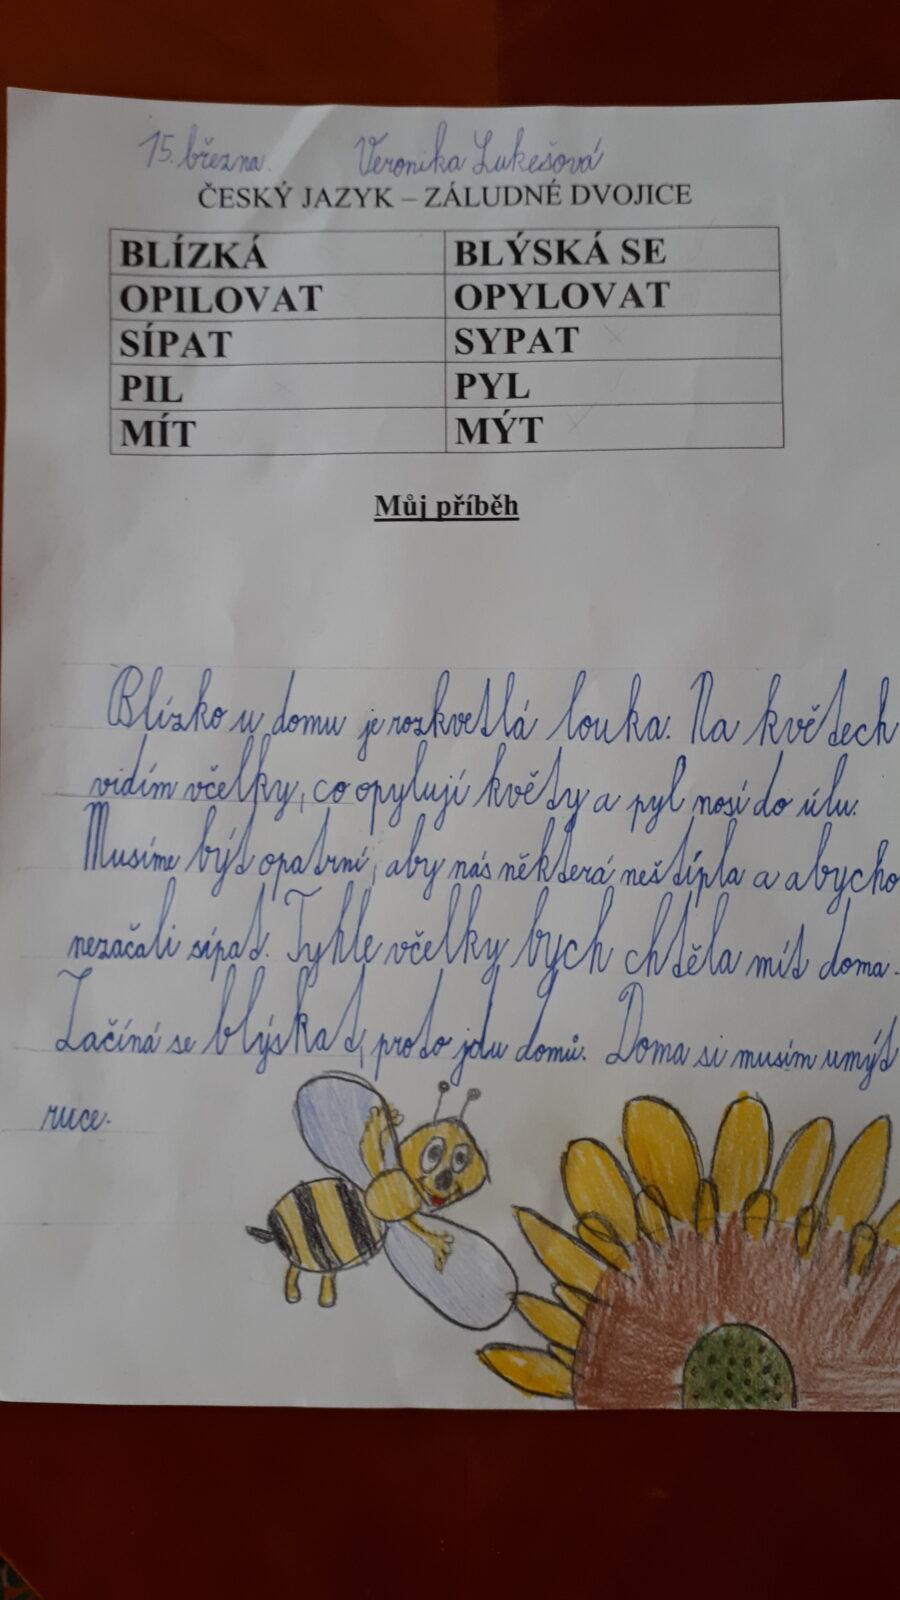 15. března. Veronika Lukešová
ČESKÝ JAZYK – ZÁLUDNÉ DVOJICE
BLÍZKÁ BLÝSKÁ SE
OPILOVAT OPYLOVAT
SÍPAT SYPAT
PIL PYL
MÍT MÝT
Můj příběh
Blízko u domu je rozkvetlá louka. Na květech
vidím včelky, co opylují květy a pyl nosí do úlu.
Musíme být opatrní, aby nás některá neštípla a abycho
nezačali sípat. Tyhle včelky bych chtěla mít doma.
Začíná se blýskat, proto jdu domů. Doma si musím umýt
ruce.